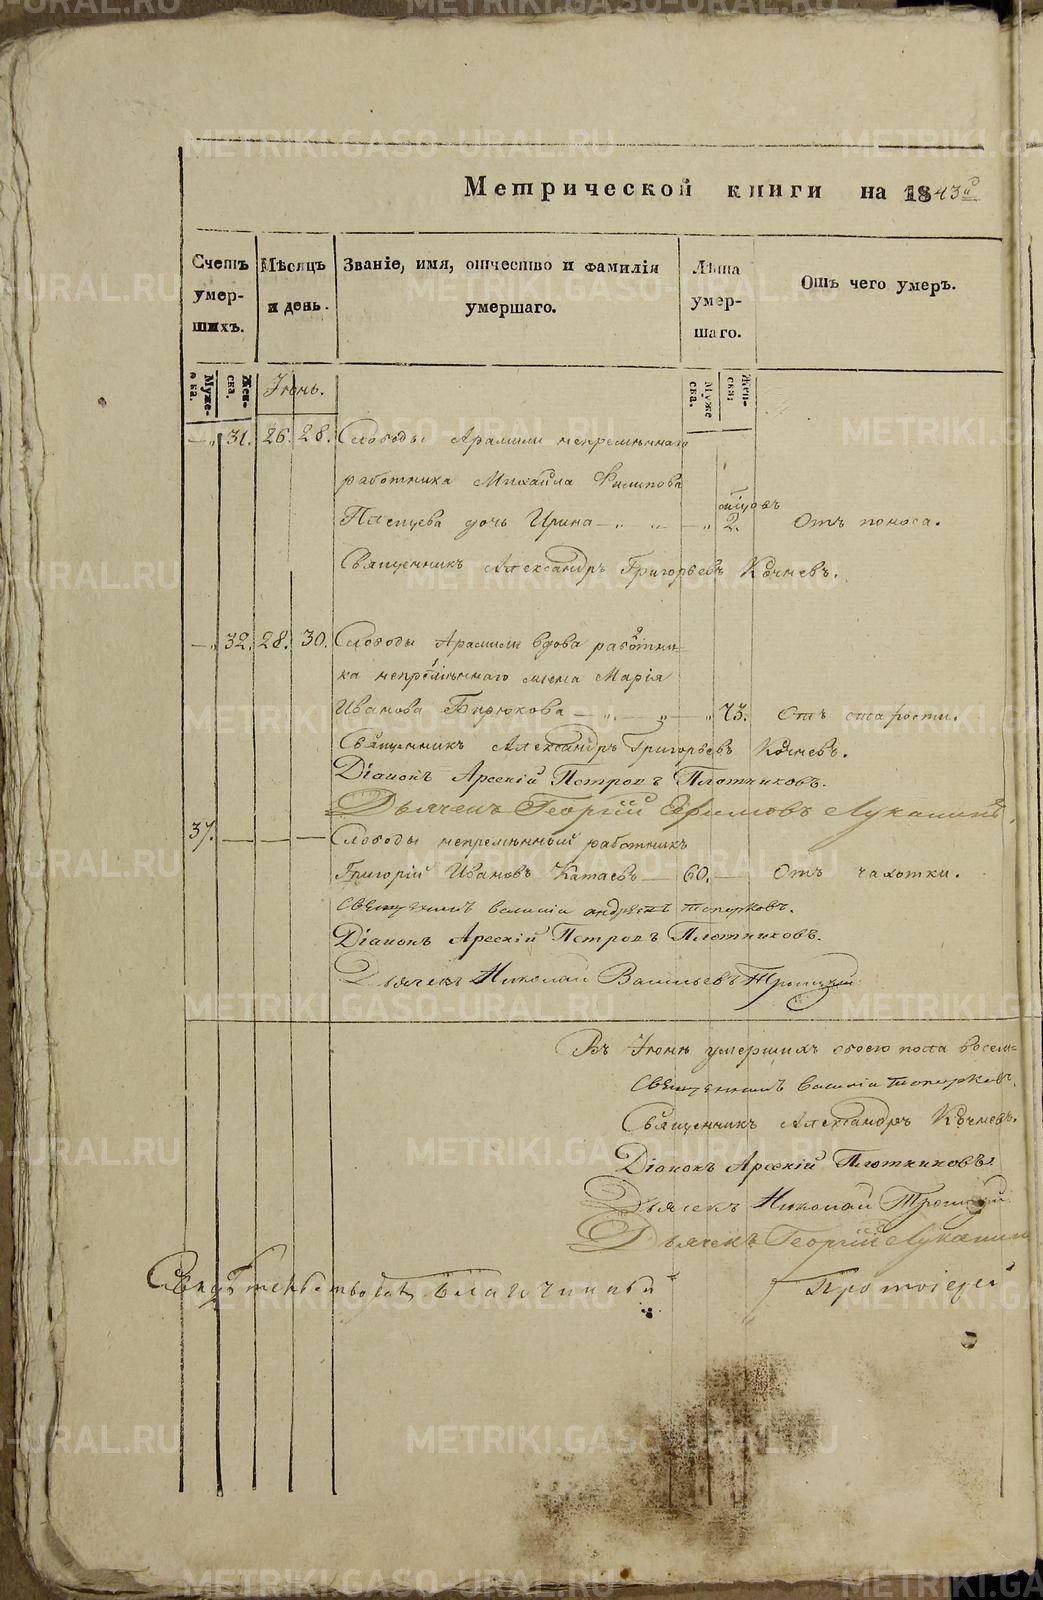 Метрической книги на 1843й
Счетъ умер-шихъ.
Мѣсяцъ и день.
Званіе, имя, отчество и фамилія умершаго.
Лѣта умер-шаго.
Отъ чего умеръ.
Муже-ска.
Жен-ска.
Іюнь.
Муже ска.
Жен-ска.
— „ 31. 26. 28. Слободы Арамили непремѣннаго
работника Михаила Филипова
мѣсяцовъ
дочь Ирина — „ — „ — „ 2. Отъ поноса.
Священникъ Александръ Григорьевъ Кочневъ.
— „ 32. 28. 30. Слободы Арамили вдова работни-
ка непремѣннаго жена Марія
Иванова Бирюкова — „ — „ — „ 73. Отъ старости.
Священникъ Александръ Григорьевъ Кочневъ.
Діаконъ Арсеній Петровъ Плотниковъ.
Дьячекъ Георгій Ефимовъ Луканинъ.
37. — — — Слободы непремѣнный работникъ
Григорій Ивановъ Катаевъ — 60. — Отъ чахотки.
Священникъ Василій Андреевъ Топорковъ.
Діаконъ Арсеній Петровъ Плотниковъ.
Дьячекъ Николай Васильевъ Троицкій
Въ Іюнѣ умершихъ обоего пола восемь
Священникъ Василій Топорковъ.
Священникъ Александръ Кочневъ.
Діаконъ Арсеній Плотниковъ.
Дьячекъ Николай Троицкій
Дьячекъ Георгій Луканин
Свидѣтельствовалъ Благочинный Протоіерей
METRIKI.GASO-URAL.RU